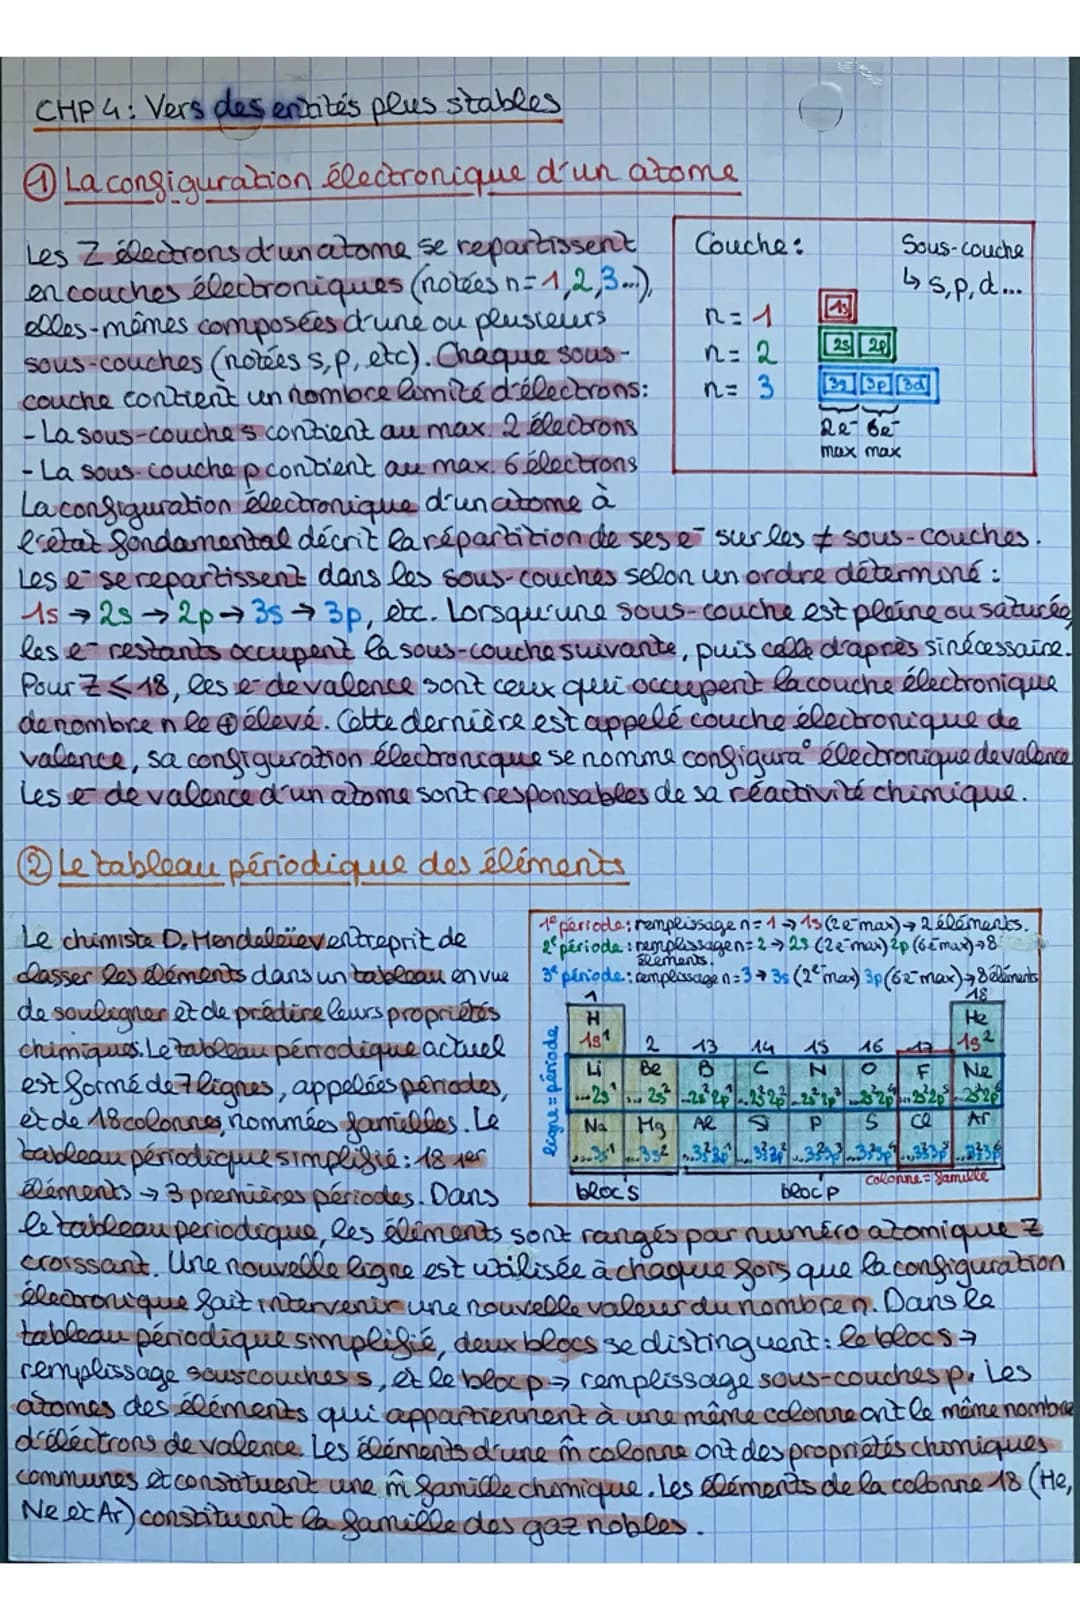 CHP 4 : Vers des entités plus stables
① La configuration électronique d'un atome
Les Z électrons d'un atome se repartissent
en couches électroniques (notées n=1,2,3...),
elles-mêmes composées d'une ou plusieurs
sous-couches (notées s, p, etc). Chaque sous-
couche contient un nombre limité d'électrons:
- La sous-couche s contient au max. 2 électrons
- La sous-couche p contient au max. 6 électrons
La configuration électronique d'un atome à
l'état fondamental décrit la répartition de ses e⁻ sur les ≠ sous-couches.
Les e⁻ se repartissent dans les sous-couches selon un ordre déterminé :
1s → 2s → 2p → 3s → 3p, etc. Lorsqu'une sous-couche est pleine ou saturée,
les e⁻ restants occupent la sous-couche suivante, puis celle d'après si nécessaire.
Pour Z ≤ 18, les e⁻ de valence sont ceux qui occupent la couche électronique
de nombre n le ⊕ élevé. Cette dernière est appelé couche électronique de
valence, sa configuration électronique se nomme configura° électronique de valence
Les e⁻ de valence d'un atome sont responsables de sa réactivité chimique.
Couche :
Sous-couche
↳ s, p, d...
n = 1
1s
n = 2
2s 2p
n = 3
3s 3p 3d
2e⁻ 6e⁻
max max
② Le tableau périodique des éléments
Le chimiste D. Mendeleïev entreprit de
classer les éléments dans un tableau en vue
de souligner et de prédire leurs propriétés
chimiques. Le tableau périodique actuel
est formé de 7 lignes, appelées périodes,
et de 18 colonnes, nommées familles. Le
tableau périodique simplifié : 18 1er
éléments → 3 premières périodes. Dans
le tableau periodique, les éléments sont rangés par numéro atomique Z
croissant. Une nouvelle ligne est utilisée à chaque fois que la configuration
électronique fait intervenir une nouvelle valeur du nombre n. Dans le
tableau périodique simplifié, deux blocs se distinguent : le bloc s →
remplissage sous couches s, et le bloc p → remplissage sous-couches p. Les
atomes des éléments qui appartiennent à une même colonne ont le même nombre
d'éléctrons de valence. Les éléments d'une m̂ colonne ont des propriétés chimiques
communes et constituent une m̂ famille chimique. Les éléments de la colonne 18 (He,
Ne et Ar) constituent la famille des gaz nobles.
1e période : remplissage n=1 → 1s (2e⁻ max) → 2 éléments.
2e période : remplissage n=2 → 2s (2e⁻ max) 2p (6e⁻ max) → 8
éléments.
3e période : remplissage n=3 → 3s (2e⁻ max) 3p (6e⁻ max) → 8 éléments
1 18
H He
1s¹ 2 13 14 15 16 17 1s²
Li Be B C N O F Ne
...2s¹ ...2s² ...2s²2p¹ ...2s²2p² ...2s²2p³ ...2s²2p⁴ ...2s²2p⁵ ...2s²2p⁶
Na Mg Al Si P S Cl Ar
...3s¹ ...3s² ...3s²3p¹ ...3s²3p² ...3s²3p³ ...3s²3p⁴ ...3s²3p⁵ ...3s²3p⁶
ligne = période
bloc s
bloc p
colonne = famille